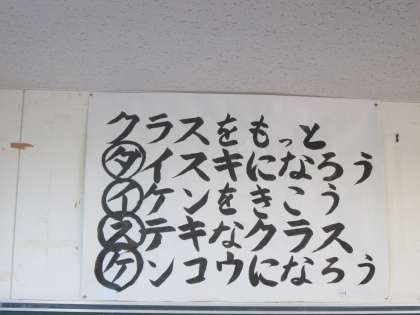 クラスをもっと
ダイスキになろう
イケンをきこう
ステキなクラス
ケンコウになろう